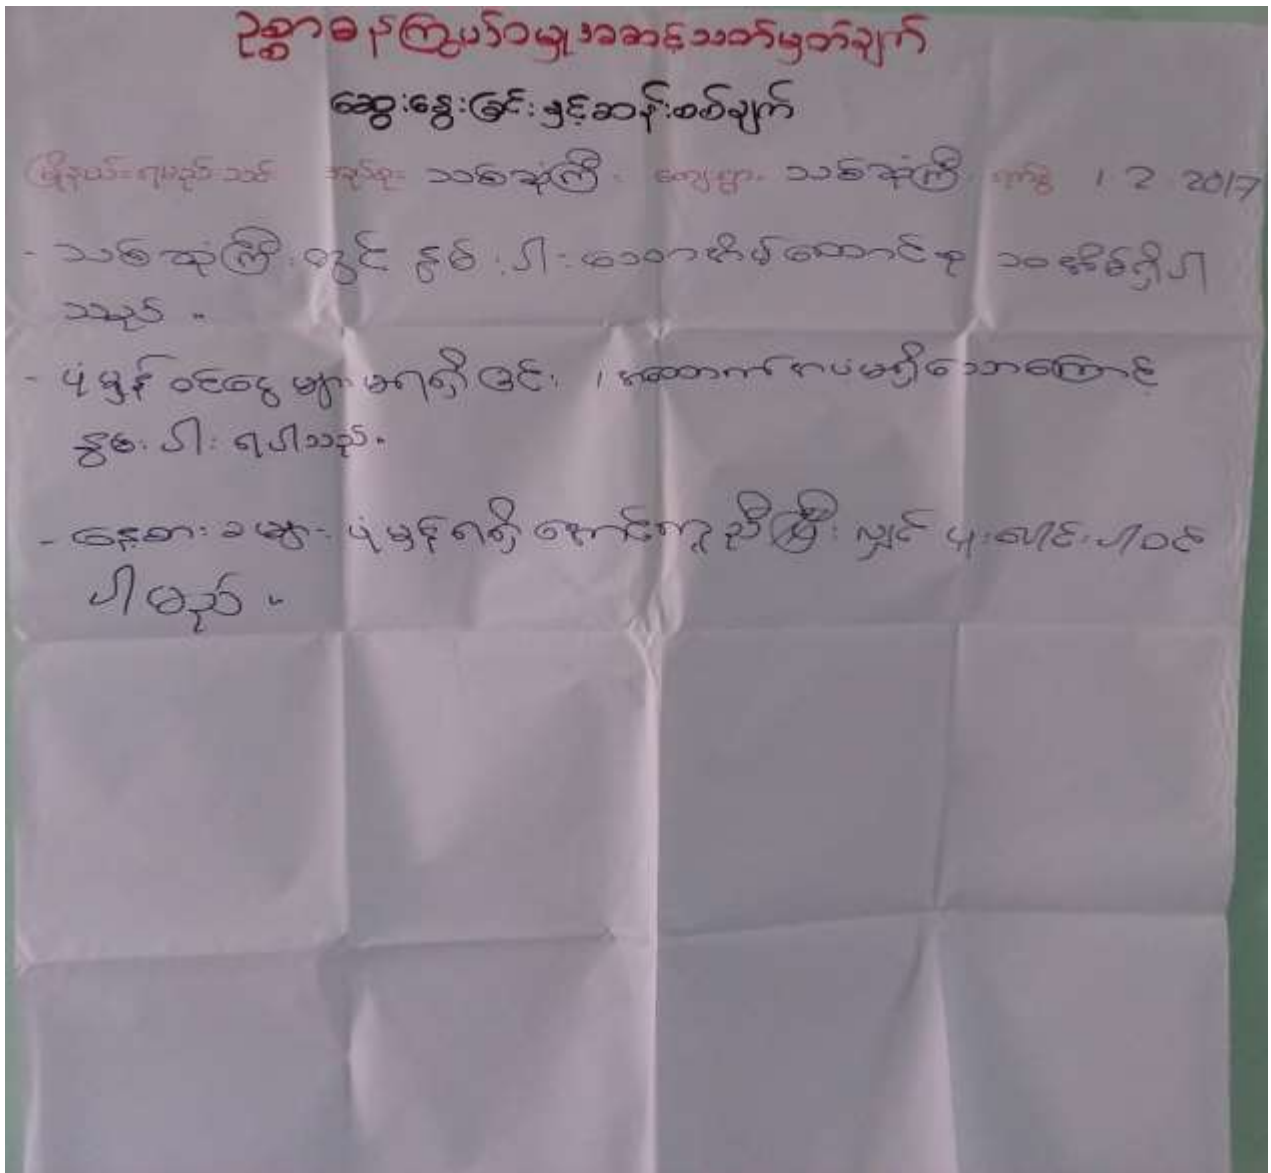 ဥစ္စာဓနကြွယ်ဝမှုအဆင့်သတ်မှတ်ချက်
ဆွေးနွေးခြင်းနှင့်ဆန်းစစ်ချက်
မြို့နယ်- ရမည်းသင်း အုပ်စု- သစ်ဆုံကြီး ကျေးရွာ- သစ်ဆုံကြီး ရက်စွဲ 1 2 2017
- သစ်ဆုံကြီးတွင် နွမ်းပါးသောအိမ်ထောင်စု ၁၀ အိမ်ရှိပါ
သည်။
- ပုံမှန်ဝင်ငွေများမရရှိခြင်း၊ အထောက်အပံ့မရှိသောကြောင့်
နွမ်းပါးရပါသည်။
- နေ့စားခများ ပုံမှန်ရရှိအောင်ကူညီပြီးလျှင် ပူးပေါင်းပါဝင်
ပါမည်။